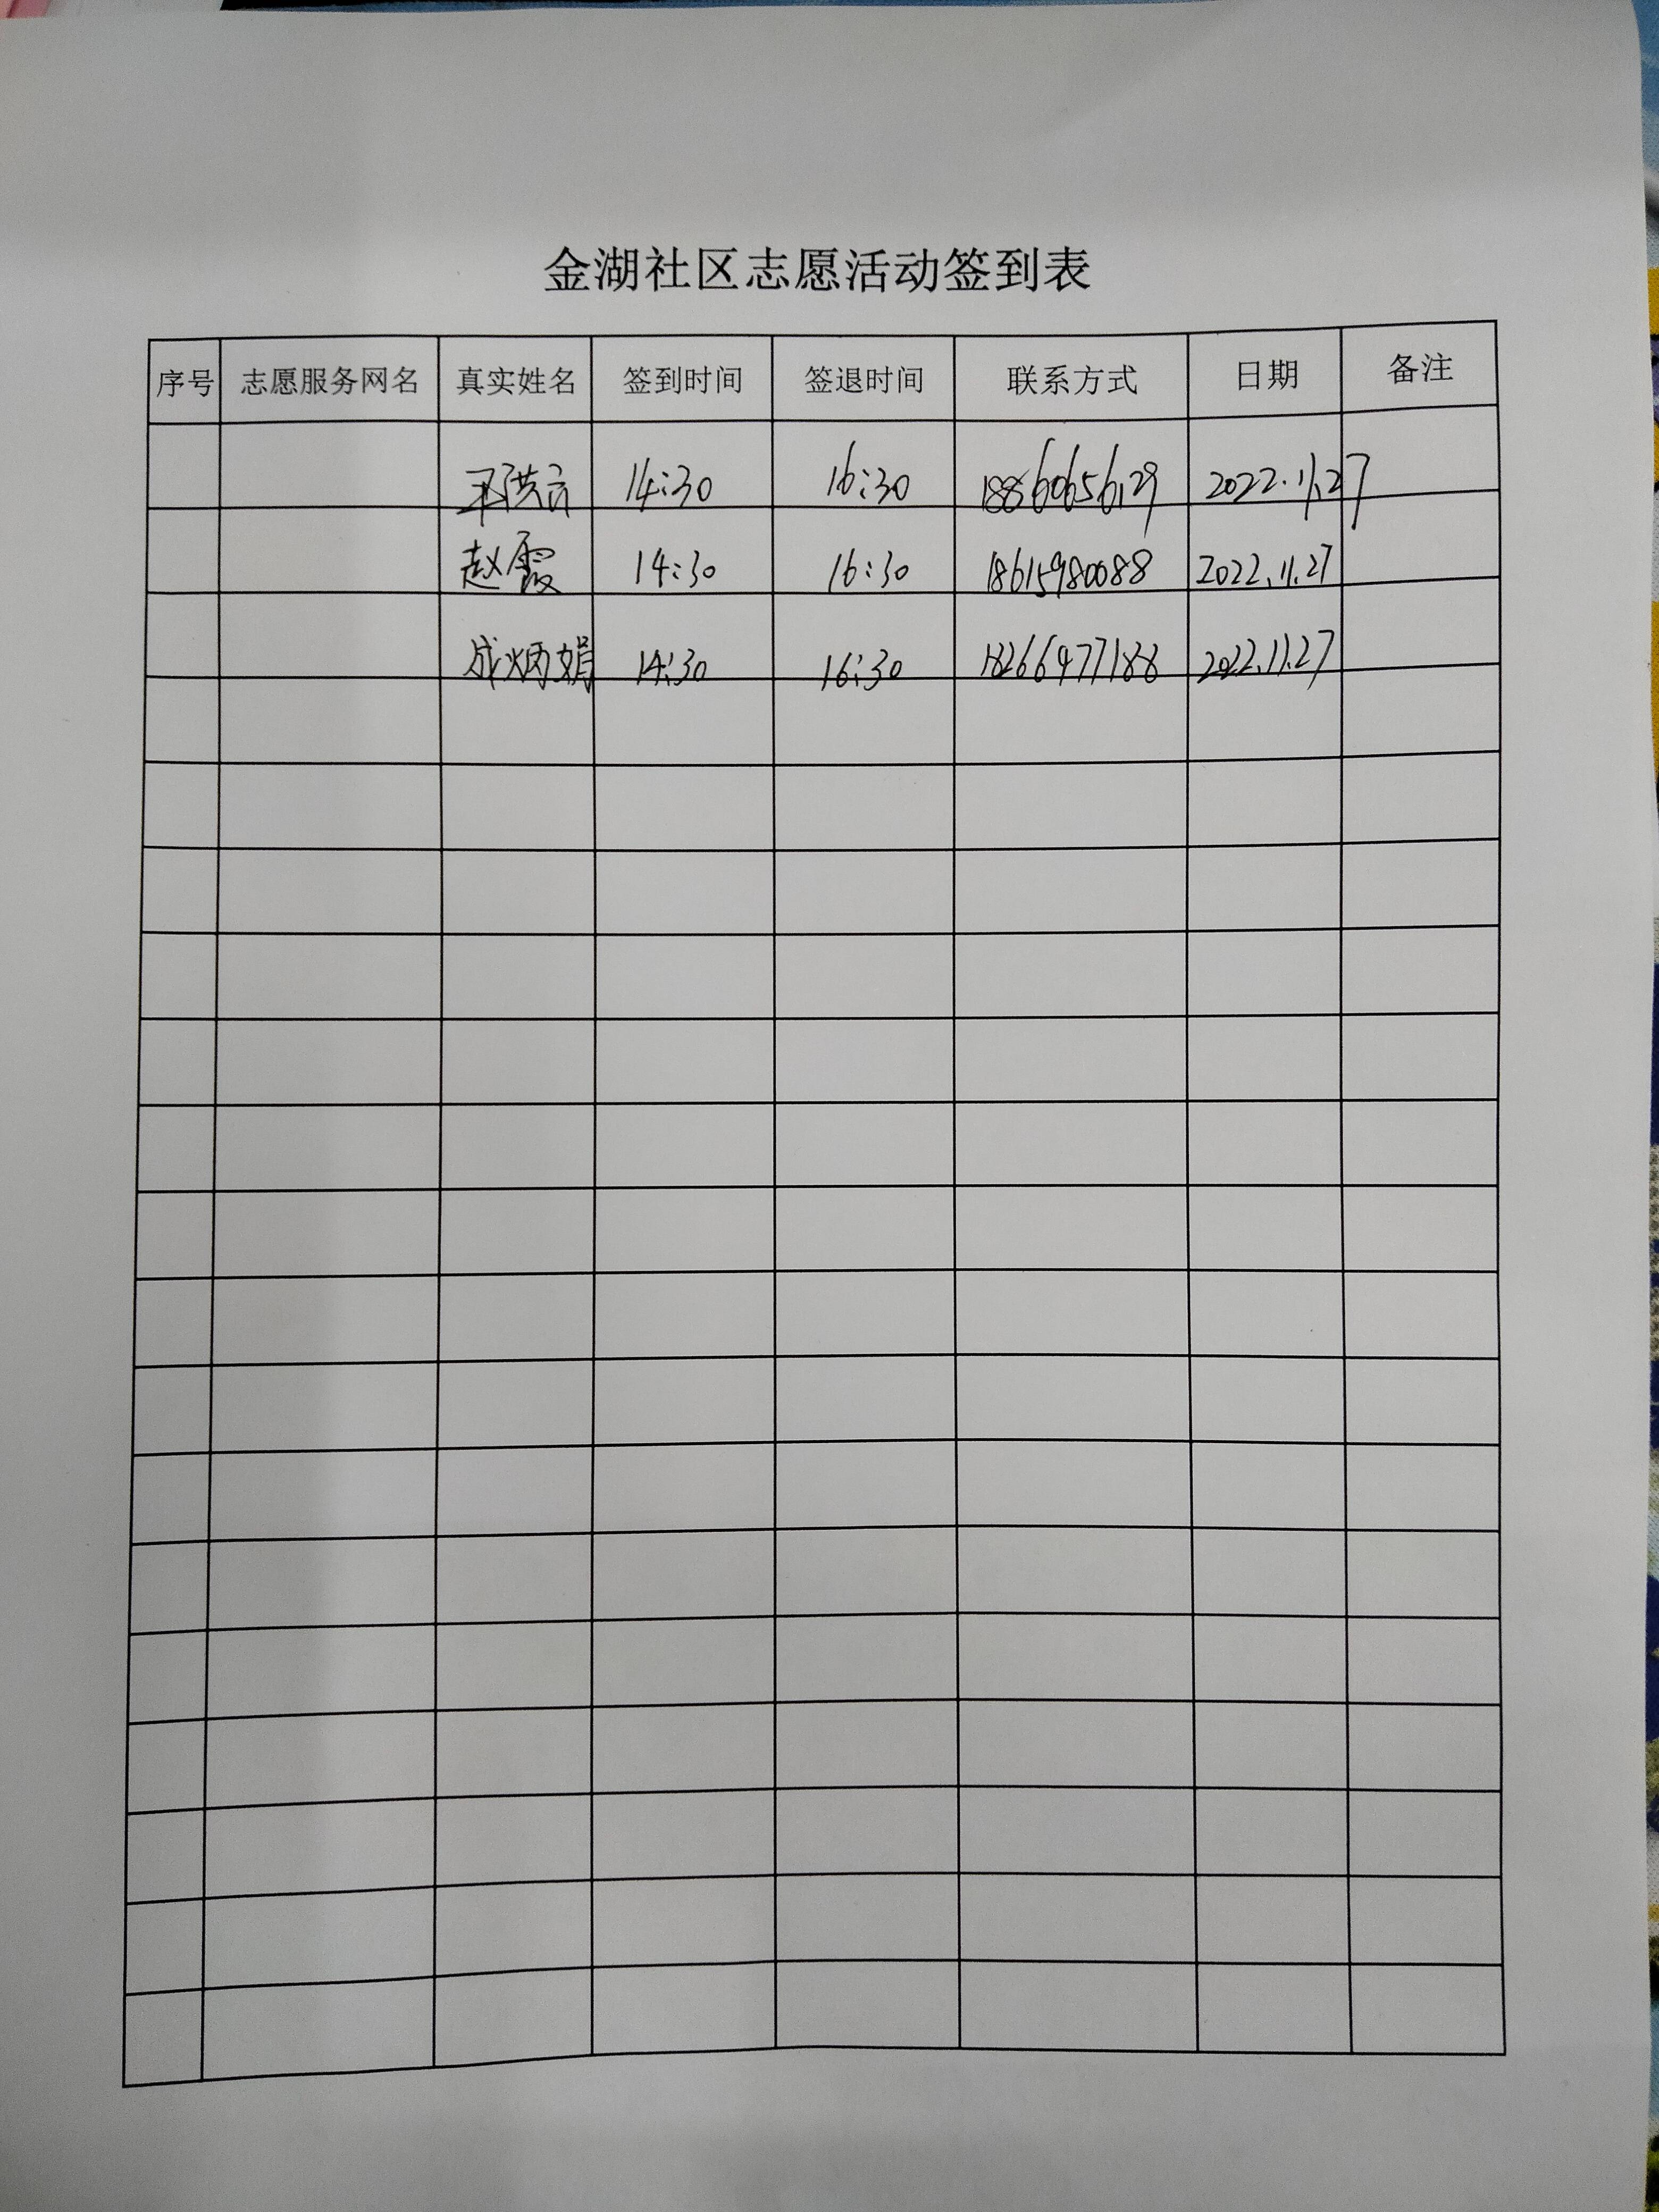 金湖社区志愿活动签到表
序号 志愿服务网名 真实姓名 签到时间 签退时间 联系方式 日期 备注
14:30 16:30 18860656129 2022.11.27
赵霞 14:30 16:30 18615980088 2022.11.27
成炳娟 14:30 16:30 18266977188 2022.11.27